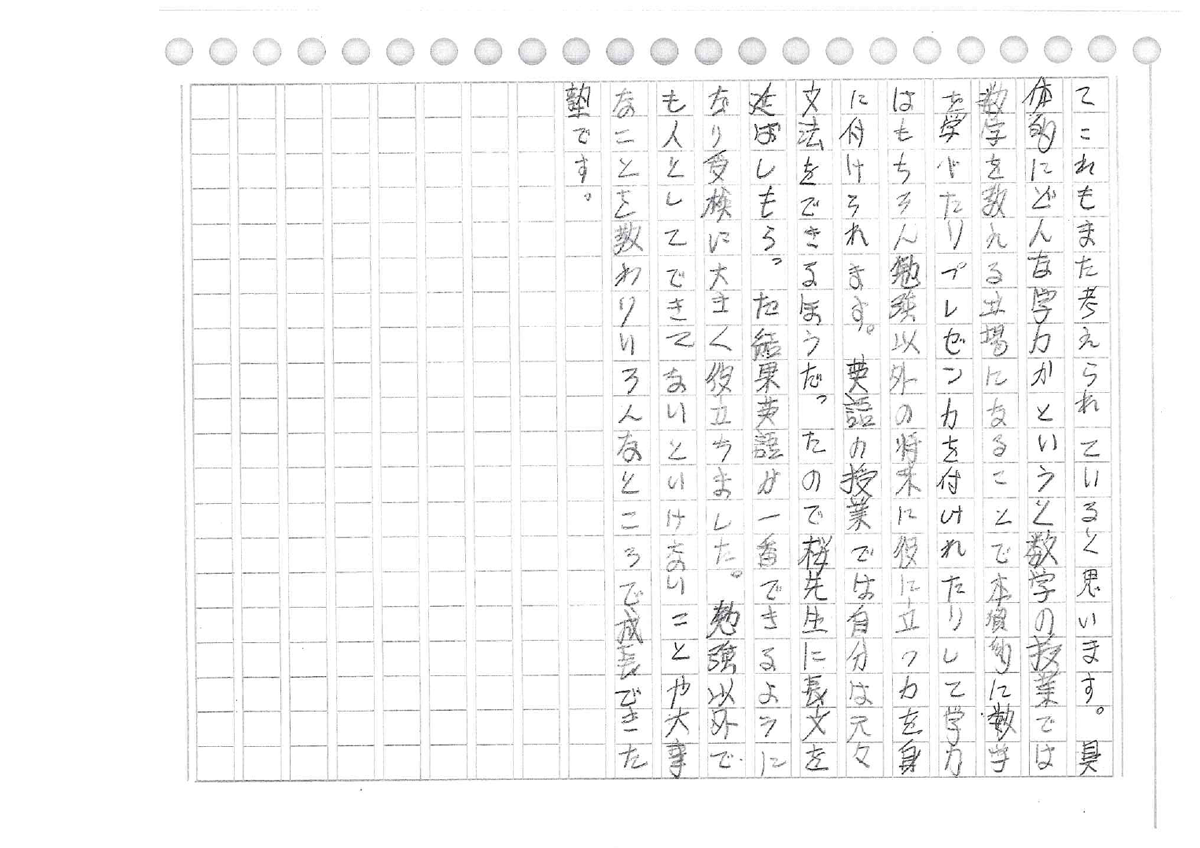 てこれもまた考えられていると思います。具
体的にどんな学力かというと数学の授業では
数学を教える立場になることで本質的に数学
を学べたりプレゼン力を付けれたりして学力
はもちろん勉強以外の将来に役に立つ力を身
に付けられます。英語の授業では自分は元々
文法をできるほうだったので桜先生に長文を
延ばしもらった結果英語が一番できるように
なり受検に大きく役立ちました。勉強以外で
も人としてできてないといけないことや大事
なことを教わりいろんなところで成長できた
塾です。